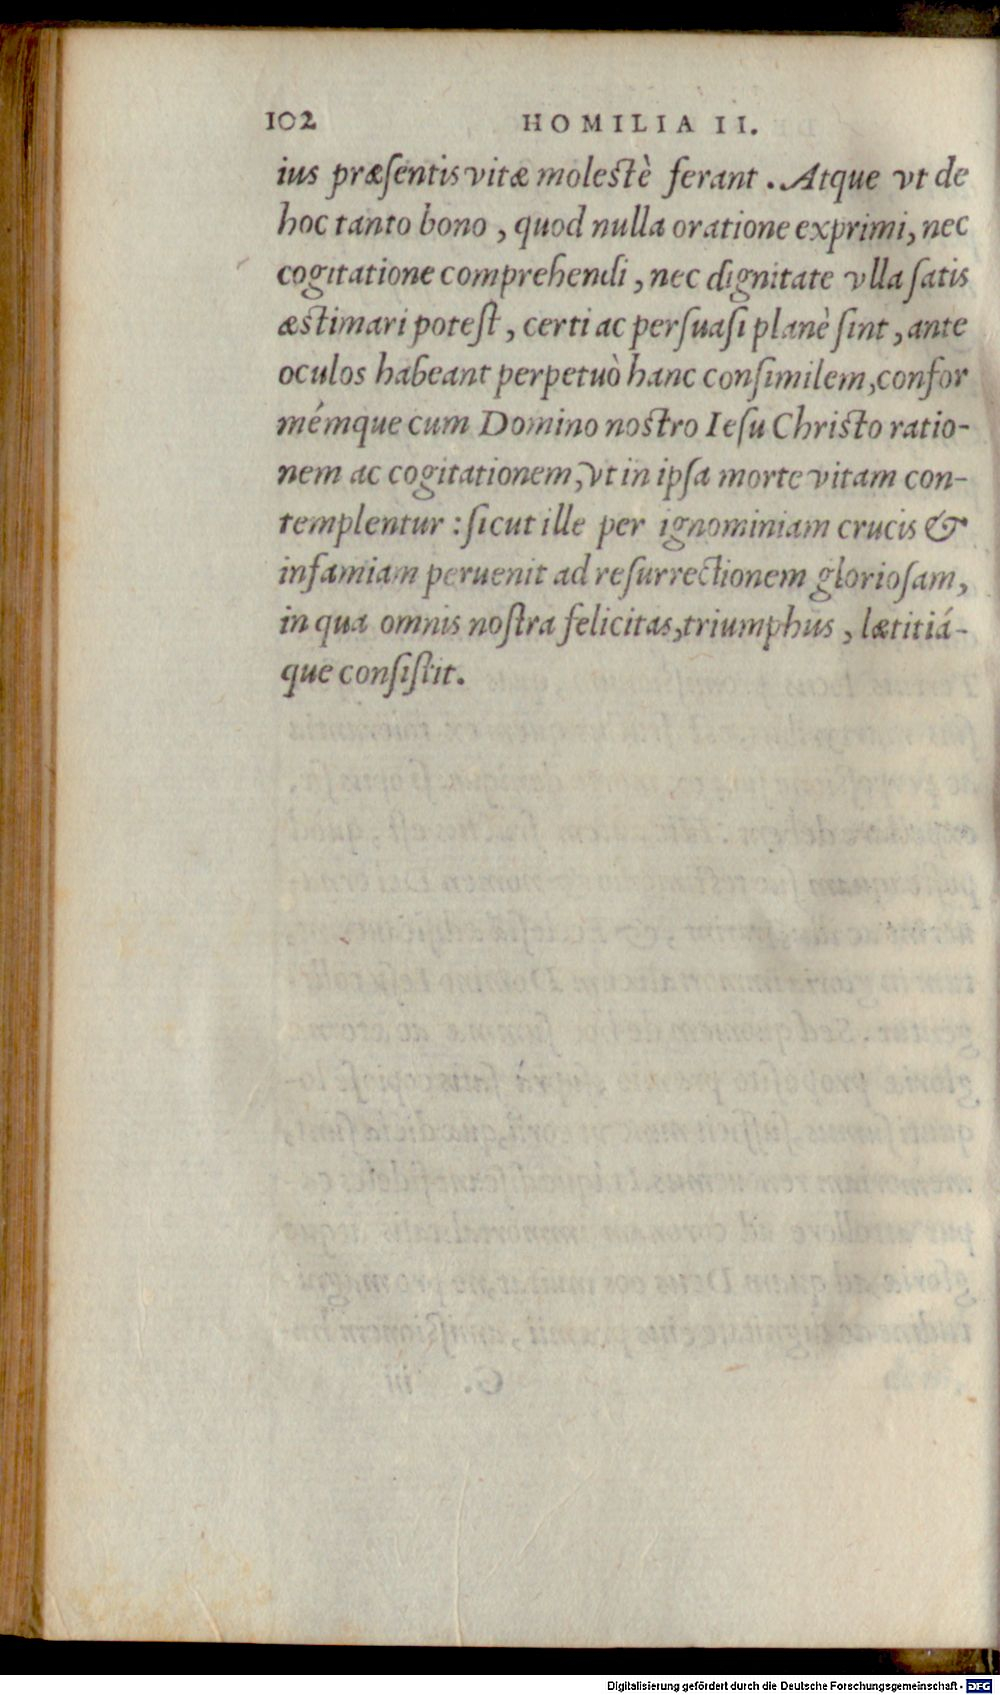 102 HOMILIA II.
ius præſentis vitæ moleſtè ferant. Atque vt de
hoc tanto bono, quod nulla oratione exprimi, nec
cogitatione comprehendi, nec dignitate vlla ſatis
æſtimari poteſt, certi ac perſuaſi planè ſint, ante
oculos habeant perpetuò hanc conſimilem, confor
mémque cum Domino noſtro Ieſu Chriſto ratio-
nem ac cogitationem, vt in ipſa morte vitam con-
templentur: ſicut ille per ignominiam crucis &
infamiam peruenit ad reſurrectionem glorioſam,
in qua omnis noſtra felicitas, triumphus, lætitiá-
que conſiſtit.
Digitalisierung gefördert durch die Deutsche Forschungsgemeinschaft - DFG